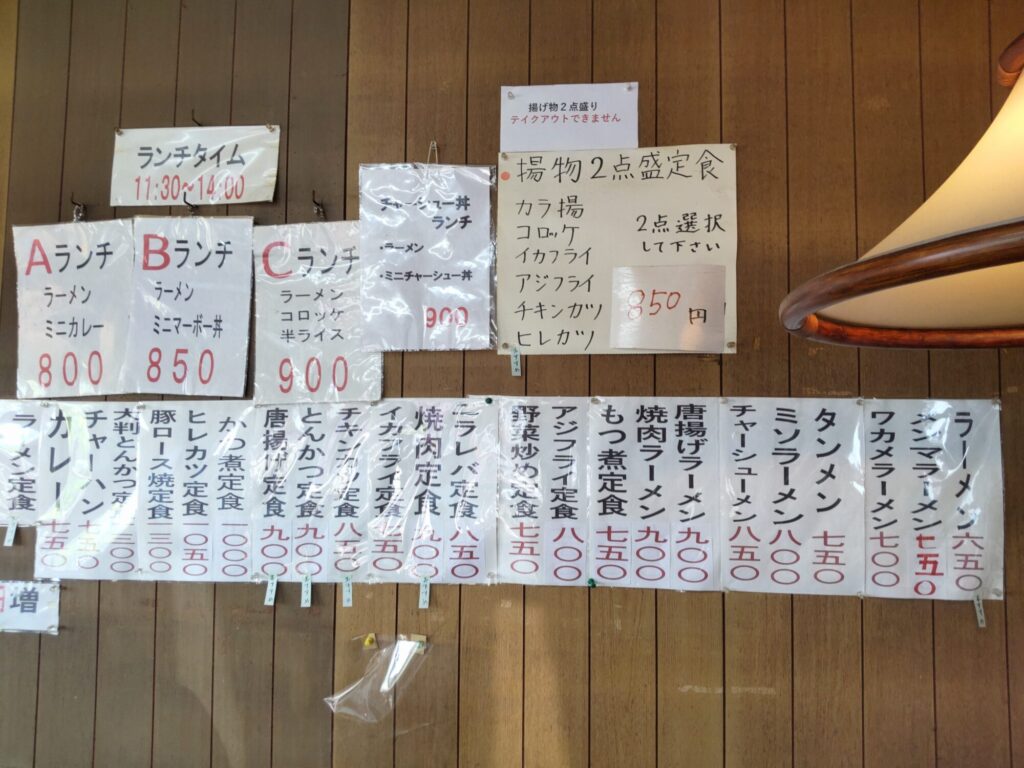 揚げ物２点盛り
テイクアウトできません
ランチタイム
11:30~14:00
Aランチ
ラーメン
ミニカレー
800
Bランチ
ラーメン
ミニマーボー丼
850
Cランチ
ラーメン
コロッケ
半ライス
900
チャーシュー丼
ランチ
・ラーメン
・ミニチャーシュー丼
900
揚物2点盛定食
カラ揚
コロッケ
イカフライ
アジフライ
チキンカツ
ヒレカツ
2点選択
して下さい
850円
おすすめ
ラーメン六五〇
メンマラーメン七五〇
ワカメラーメン七〇〇
タンメン七五〇
ミソラーメン八〇〇
チャーシューメン八五〇
唐揚げラーメン九〇〇
焼肉ラーメン九〇〇
もつ煮定食七五〇
アジフライ定食八〇〇
野菜炒め定食七五〇
ニラレバ定食八五〇
焼肉定食九〇〇
イカフライ定食
チキンカツ定食八五〇
とんかつ定食九〇〇
唐揚げ定食九〇〇
かつ煮定食一〇〇〇
ヒレカツ定食一〇五〇
豚ロース焼定食一三〇〇
大判とんかつ定
チャーハン七五〇
カレー七五〇
ラーメン定食
おすすめ
おすすめ
おすすめ
おすすめ
増